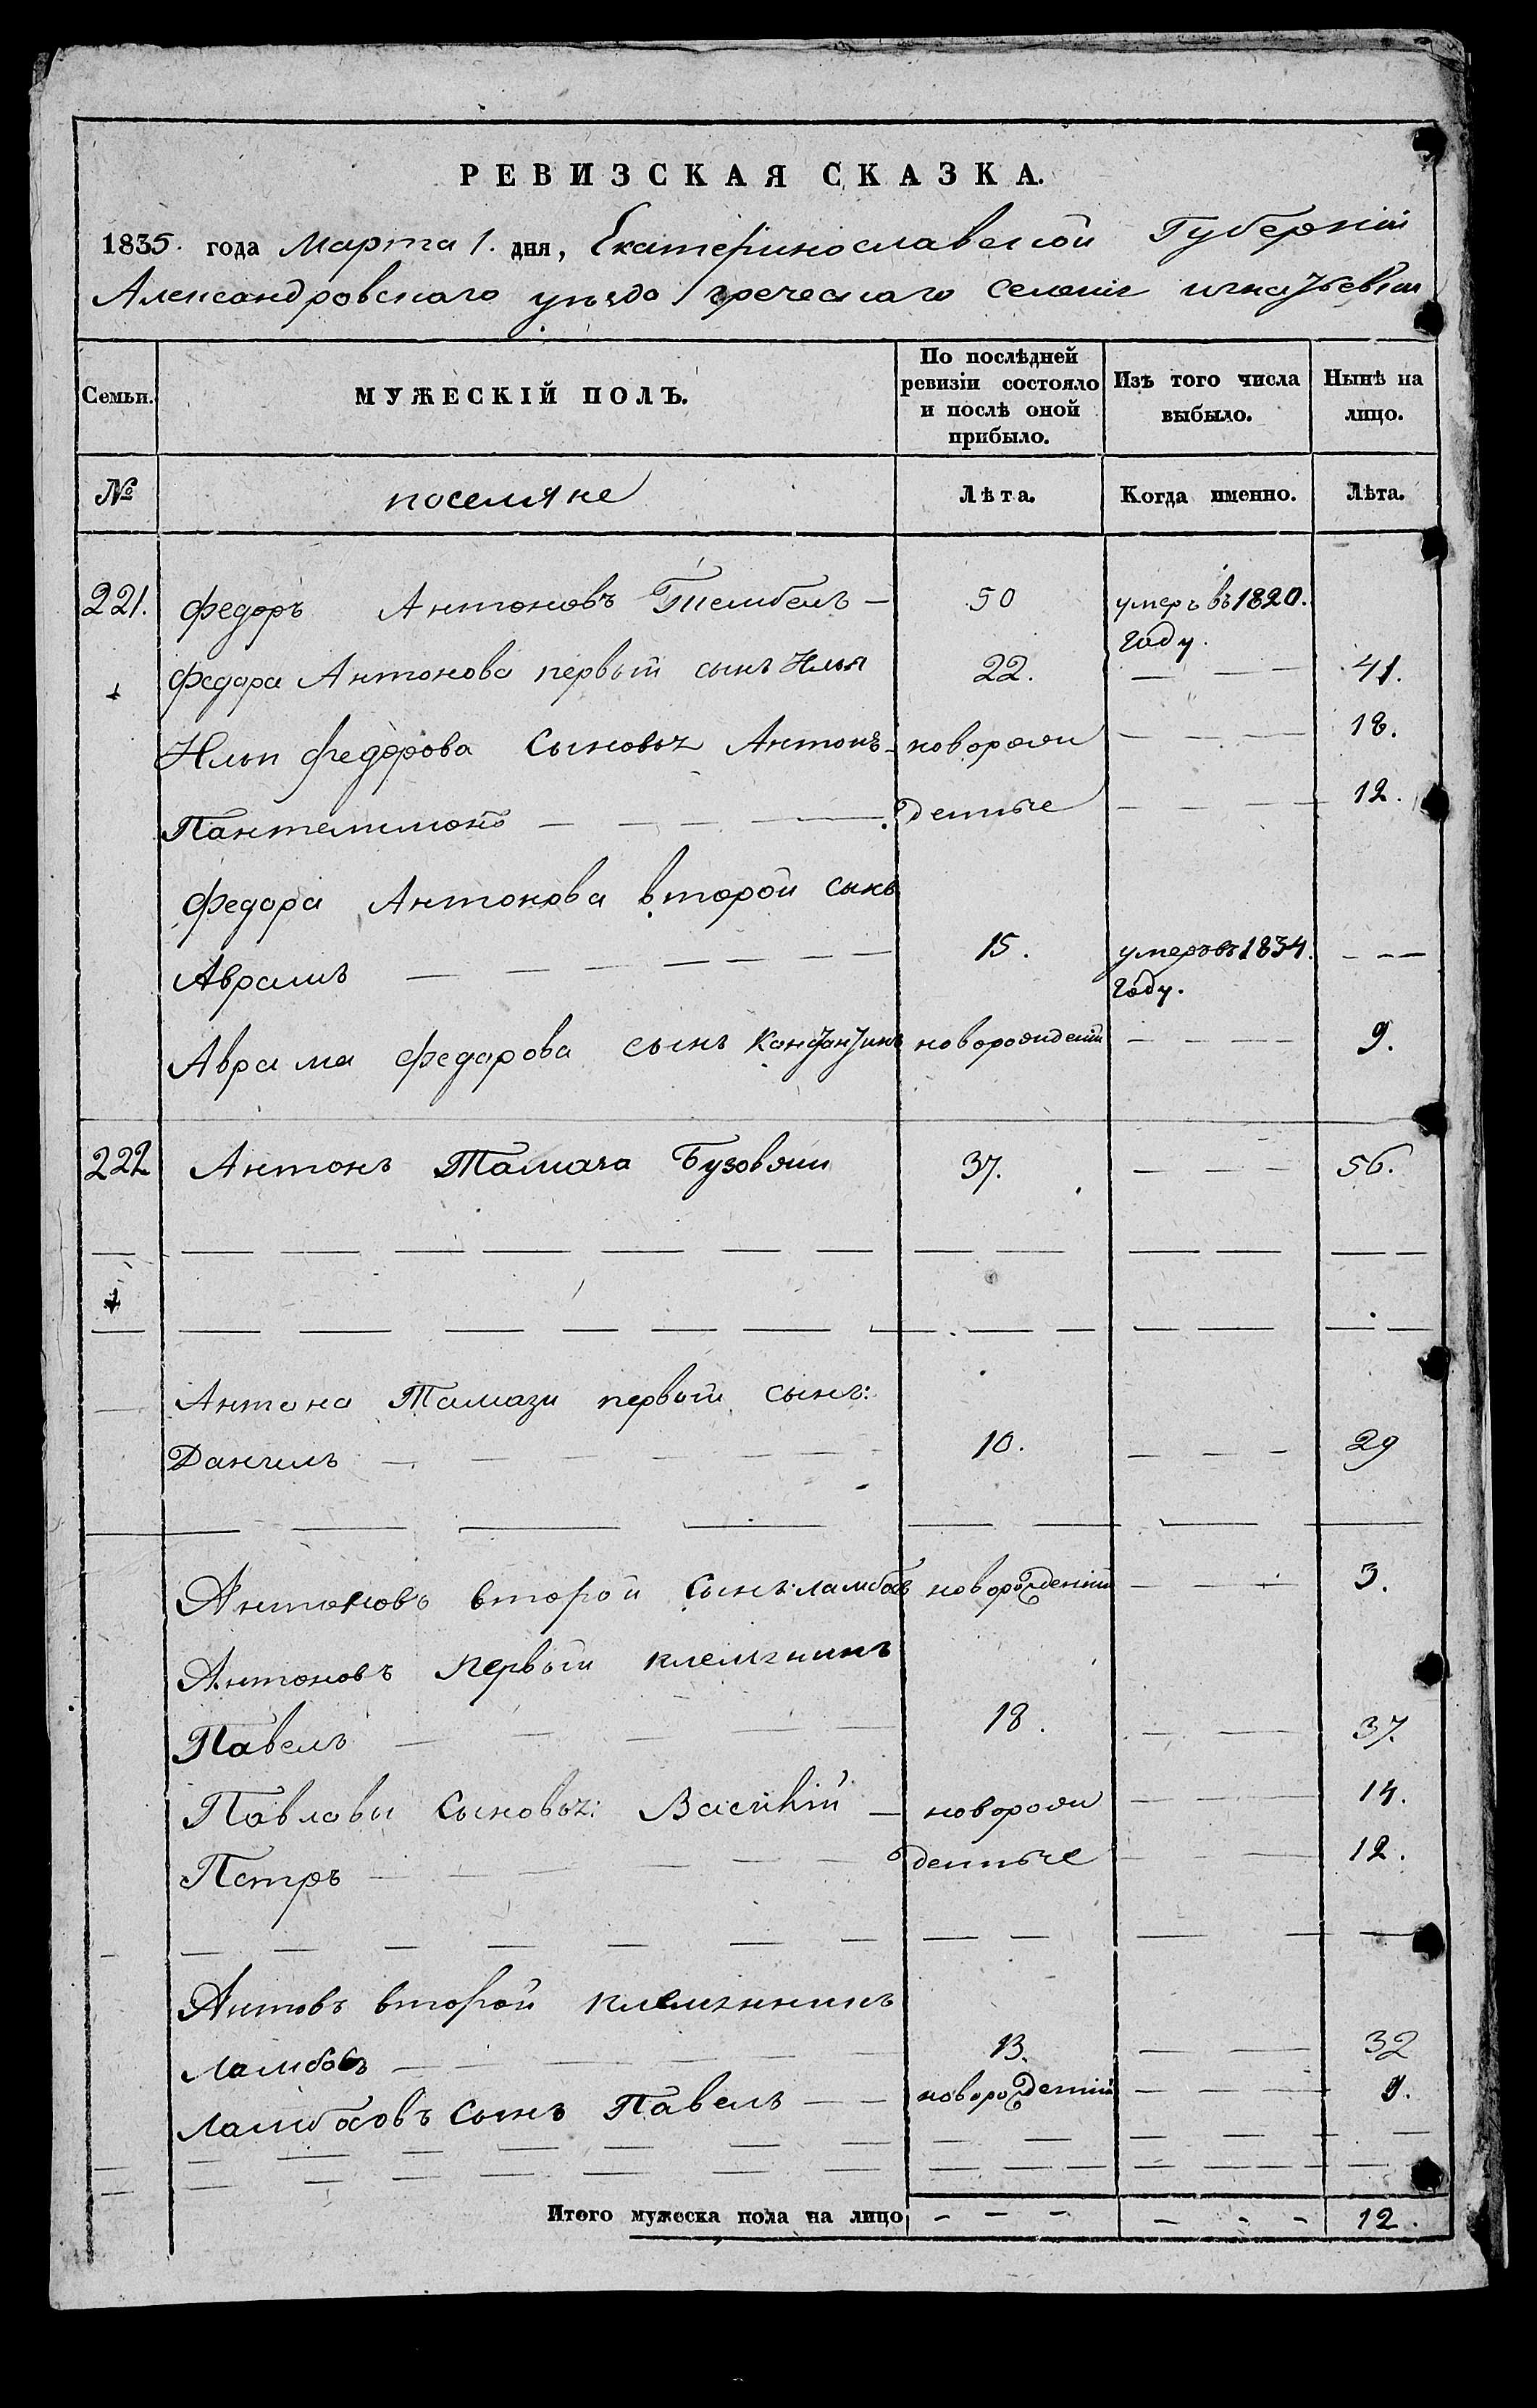 РЕВИЗСКАЯ СКАЗКА.
1835. года Марта 1. дня, Екатеринославской Губерніи
Александровскаго уезда греческаго селенія игнатьевки
Семьи. МУЖЕСКІЙ ПОЛЪ. По послѣдней ревизіи состояло и послѣ оной прибыло. Изъ того числа выбыло. Нынѣ на лицо.
№ поселяне Лѣта. Когда именно. Лѣта.
221. Федоръ Антоновъ Тембелъ — 50 умеръ въ 1820. году.
Федора Антонова первый сынъ Илья 22. — — 41.
Ильи Федорова Сыновья Антонъ — новорож — — — 18.
Пантелимонъ — — — — денные — — — 12.
Федора Антонова второй сынъ
Аврамъ — — — — — — — 15. умеръ въ 1834. году. — — —
Аврама Федорова сынъ Константинъ новорожденій — — — — 9.
222 Антонъ Тамаза Бузовжи 37. — — — 56.
Антона Тамази первый сынъ:
Данилъ — — — — — — 10. — — — 29
Антоновъ второй Сынъ: ламбовъ новорожденій — — — 3.
Антоновъ первый племянникъ
Павелъ — — — — — 18. — — — 37.
Павловы Сыновья: Василій — новорож — — — 14.
Петръ — — — — — — денные — — — 12.
Антовъ второй племянникъ
Ламбовъ — — — — — — 13. — — — 32
Ламбовъ Сынъ Павелъ — — новорожденій — — — 9.
Итого мужеска пола на лицо — — — — — — 12.